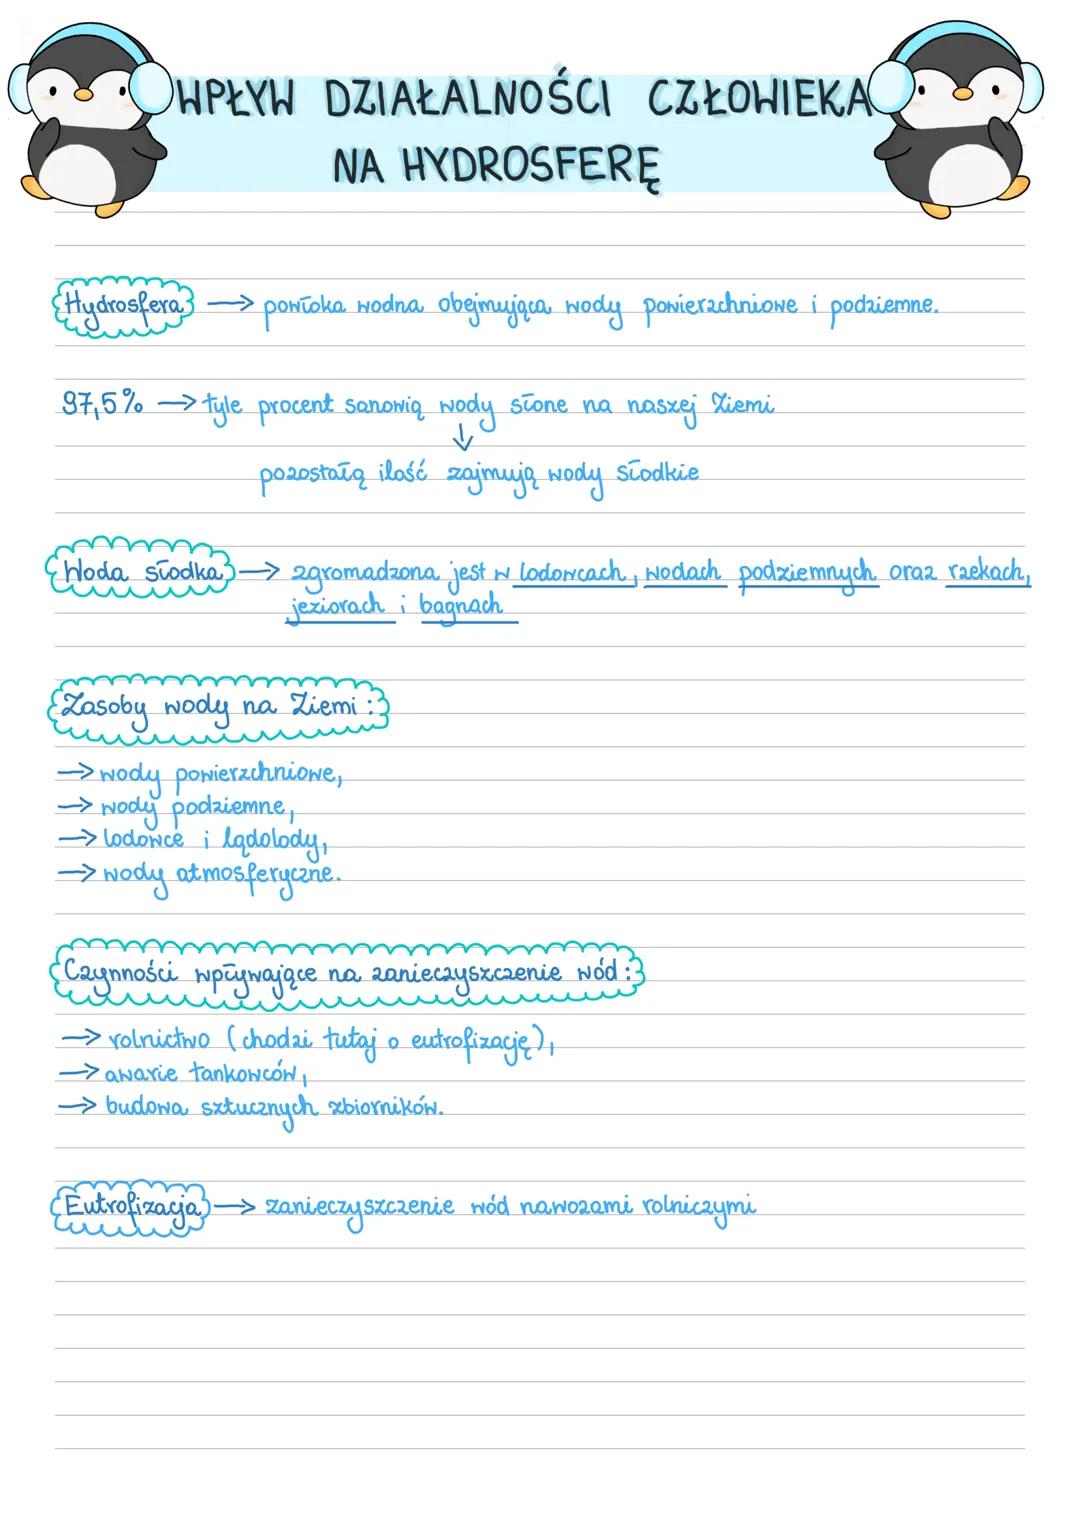 WPŁYW DZIAŁALNOŚCI CZŁOWIEKA
NA HYDROSFERĘ
Hydrosfera → powłoka wodna obejmująca wody powierzchniowe i podziemne.
97,5% → tyle procent sanowią wody słone na naszej Ziemi
↓
pozostałą ilość zajmują wody słodkie
Woda słodka → zgromadzona jest w lodowcach, wodach podziemnych oraz rzekach,
jeziorach i bagnach
Zasoby wody na Ziemi:
→ wody powierzchniowe,
→ wody podziemne,
→ lodowce i lądolody,
→ wody atmosferyczne.
Czynności wpływające na zanieczyszczenie wód:
→ rolnictwo (chodzi tutaj o eutrofizację),
→ awarie tankowców,
→ budowa sztucznych zbiorników.
Eutrofizacja → zanieczyszczenie wód nawozami rolniczymi